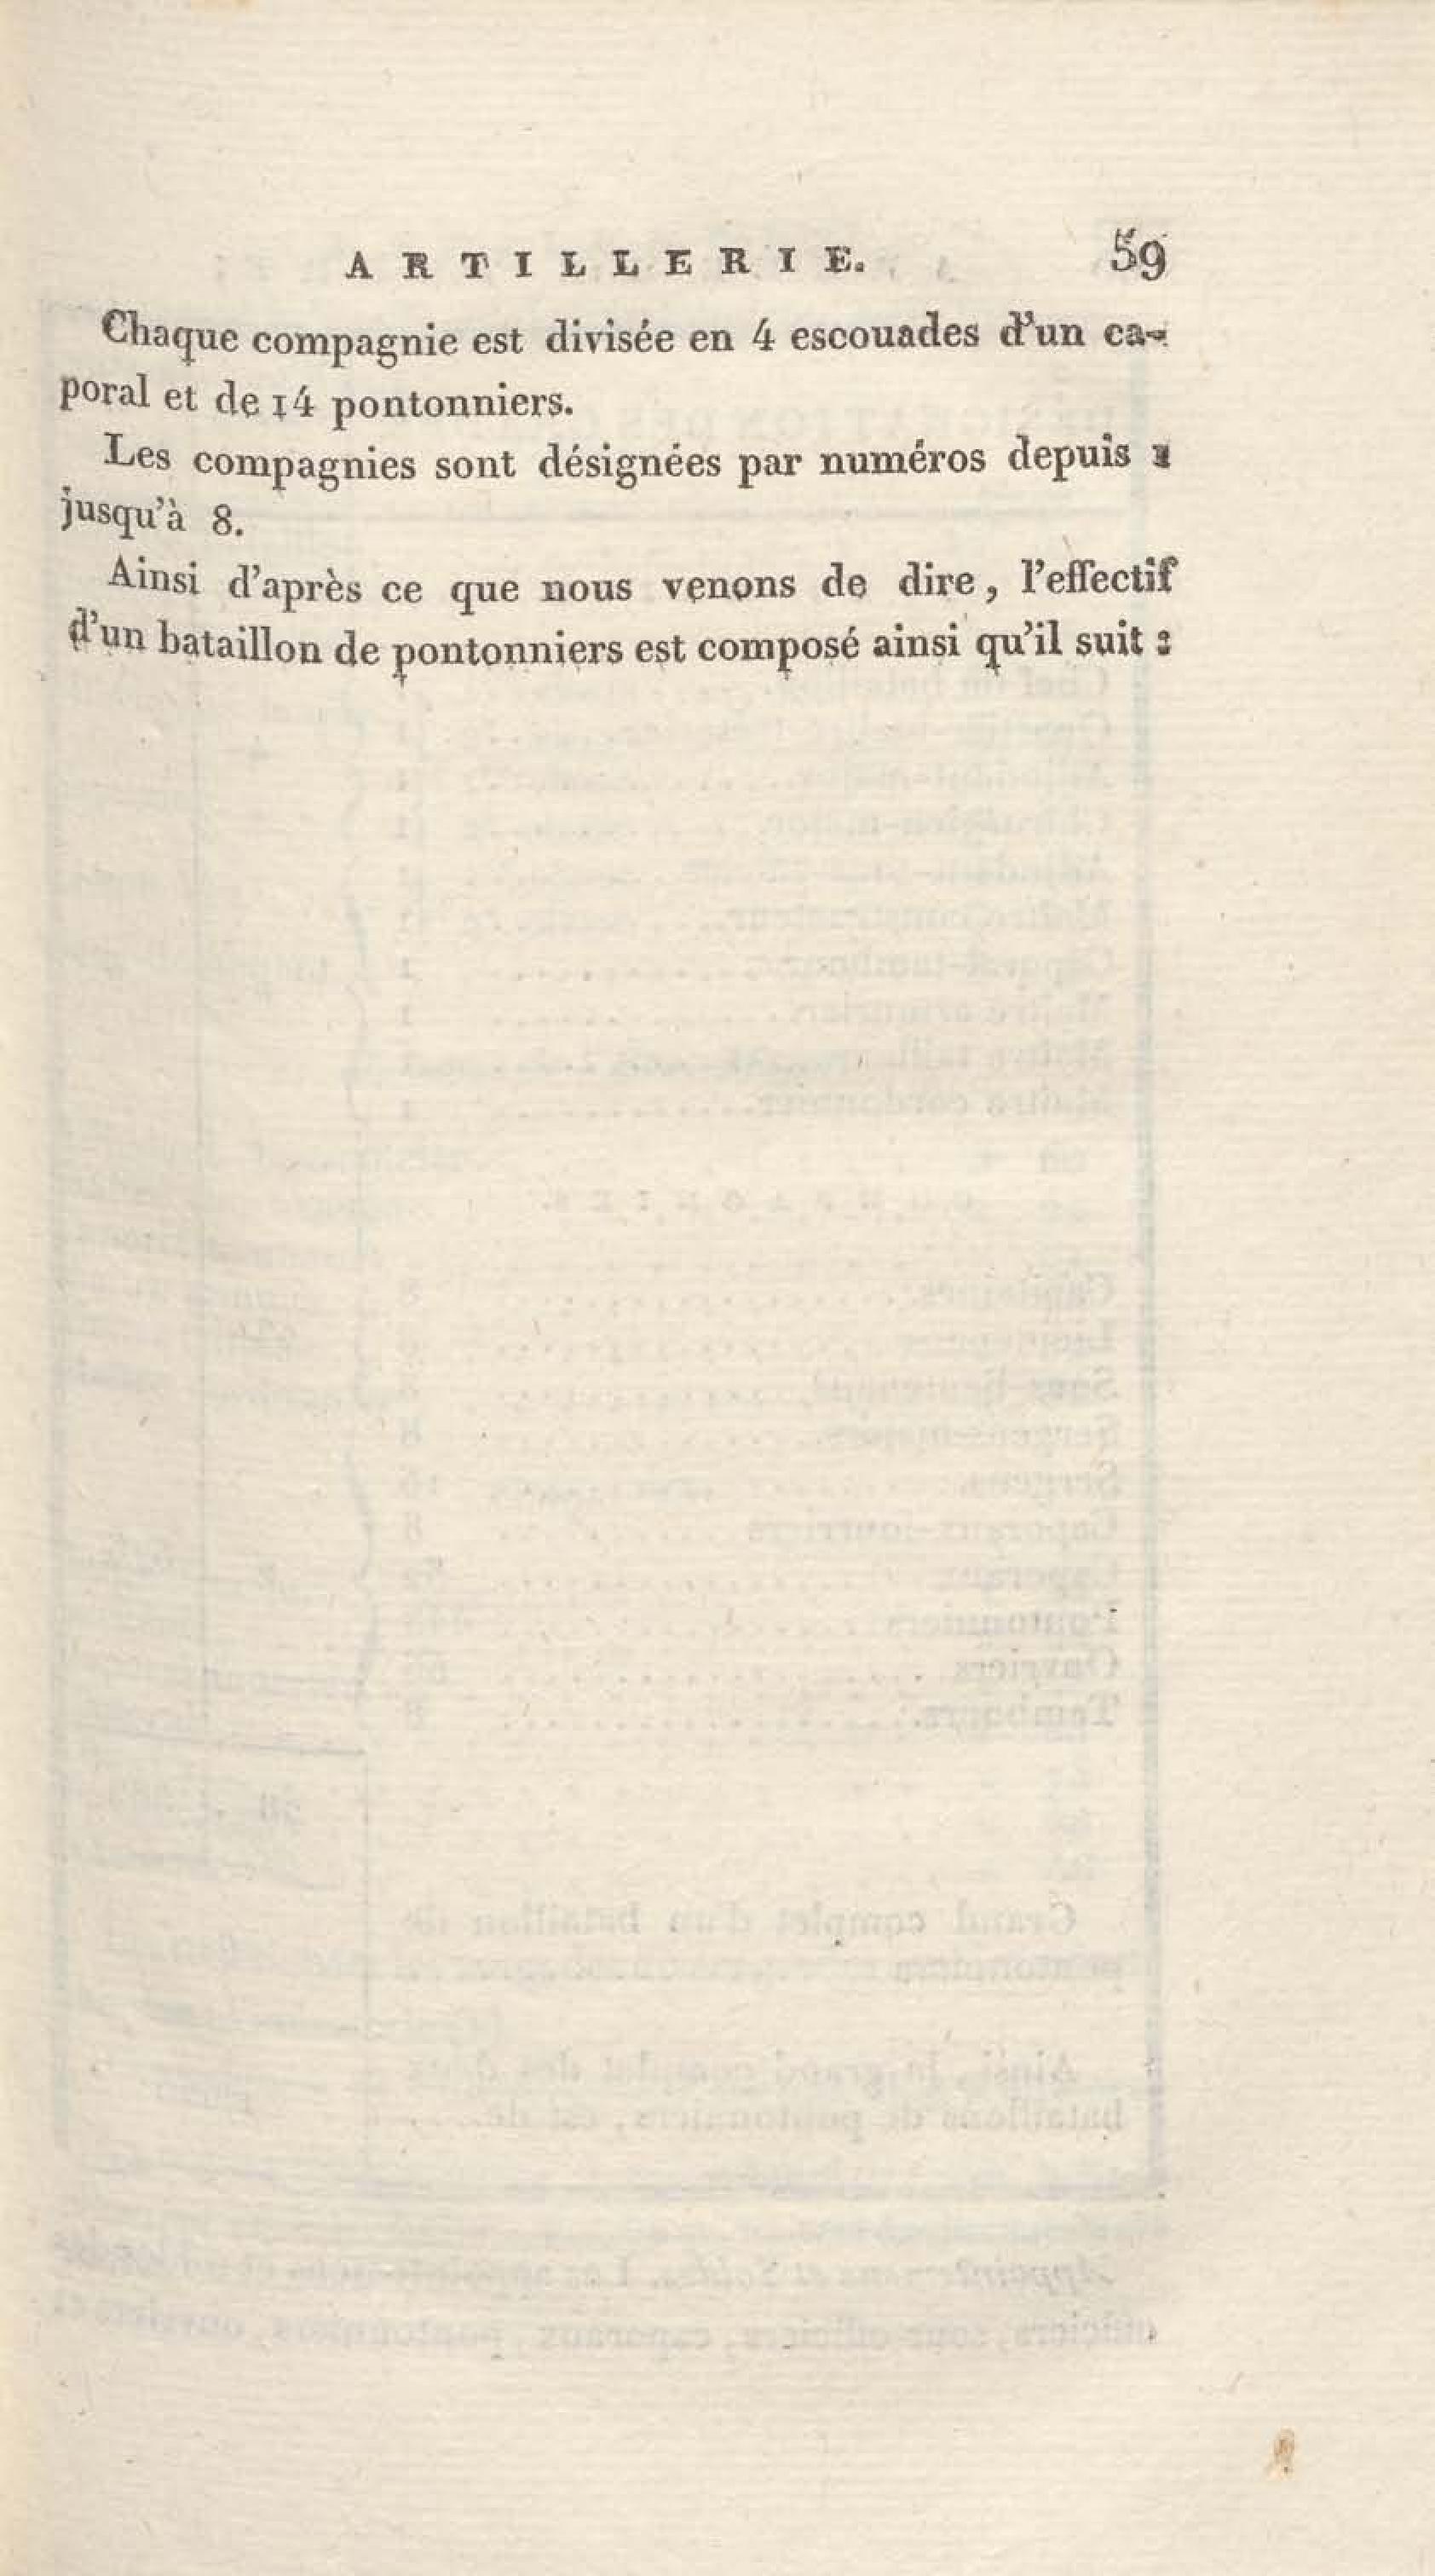 ARTILLERIE. 59
Chaque compagnie est divisée en 4 escouades d'un ca-
poral et de 14 pontonniers.
Les compagnies sont désignées par numéros depuis 1
jusqu'à 8.
Ainsi d'après ce que nous venons de dire, l'effectif
d'un bataillon de pontonniers est composé ainsi qu'il suit :